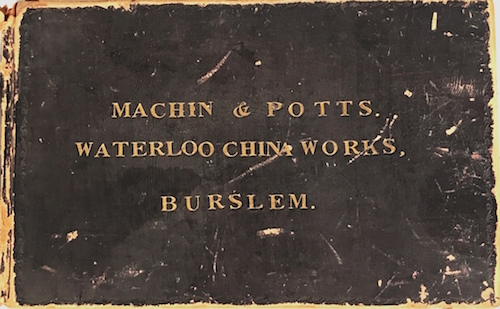 MACHIN & POTTS.
WATERLOO CHINA WORKS,
BURSLEM.